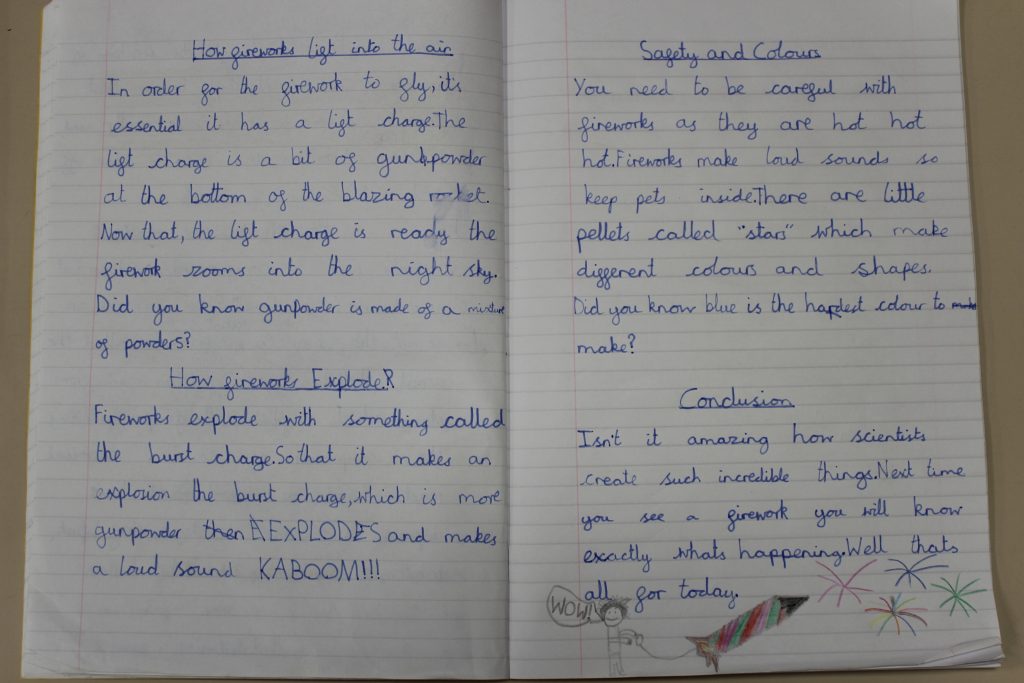 How fireworks lift into the air
In order for the firework to fly, it's
essential it has a lift charge. The
lift charge is a bit of gunpowder
at the bottom of the blazing rocket.
Now that, the lift charge is ready the
firework zooms into the night sky.
Did you know gunpowder is made of a mixture
of powders?
How fireworks Explode.
Fireworks explode with something called
the burst charge. So that it makes an
explosion the burst charge, which is more
gunpowder then EXPLODES and makes
a loud sound KABOOM!!!
Safety and Colours
You need to be careful with
fireworks as they are hot hot
hot. Fireworks make loud sounds so
keep pets inside. There are little
pellets called "stars" which make
different colours and shapes.
Did you know blue is the hardest colour to
make?
Conclusion
Isn't it amazing how scientists
create such incredible things. Next time
you see a firework you will know
exactly whats happening. Well thats
all for today.
WOW!